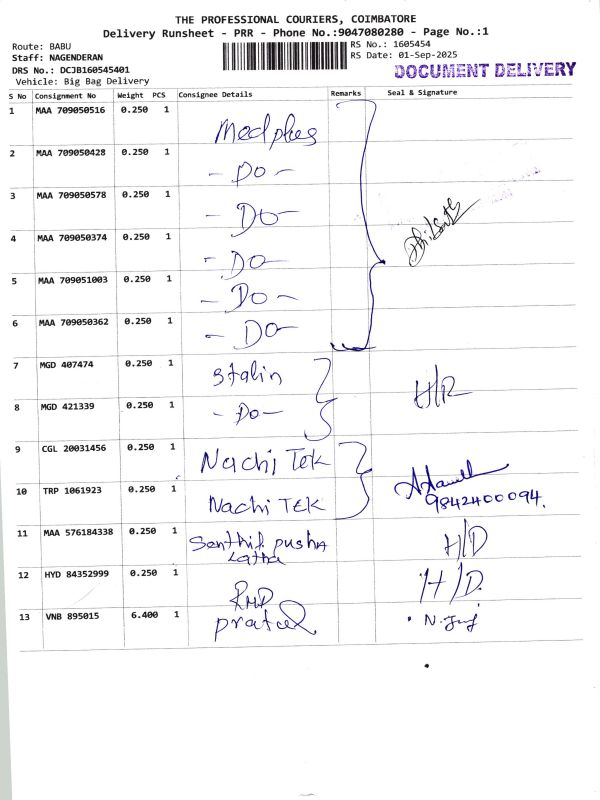 THE PROFESSIONAL COURIERS, COIMBATORE
Delivery Runsheet - PRR - Phone No.:9047080280 - Page No.:1
Route: BABU
Staff: NAGENDERAN
DRS No.: DCJB160545401
Vehicle: Big Bag Delivery
RS No.: 1605454
RS Date: 01-Sep-2025
DOCUMENT DELIVERY
S No Consignment No Weight PCS Consignee Details Remarks Seal & Signature
1 MAA 709050516 0.250 1 Medplus
2 MAA 709050428 0.250 1 - Do -
3 MAA 709050578 0.250 1 - Do -
4 MAA 709050374 0.250 1 - Do -
5 MAA 709051003 0.250 1 - Do -
6 MAA 709050362 0.250 1 - Do -
7 MGD 407474 0.250 1 Stalin
8 MGD 421339 0.250 1 - Do - H/R
9 CGL 20031456 0.250 1 Nachi Tek
10 TRP 1061923 0.250 1 Nachi TEK 9842400094.
11 MAA 576184338 0.250 1 Senthil pusha Latha H/D
12 HYD 84352999 0.250 1 RMP H/D.
13 VNB 895015 6.400 1